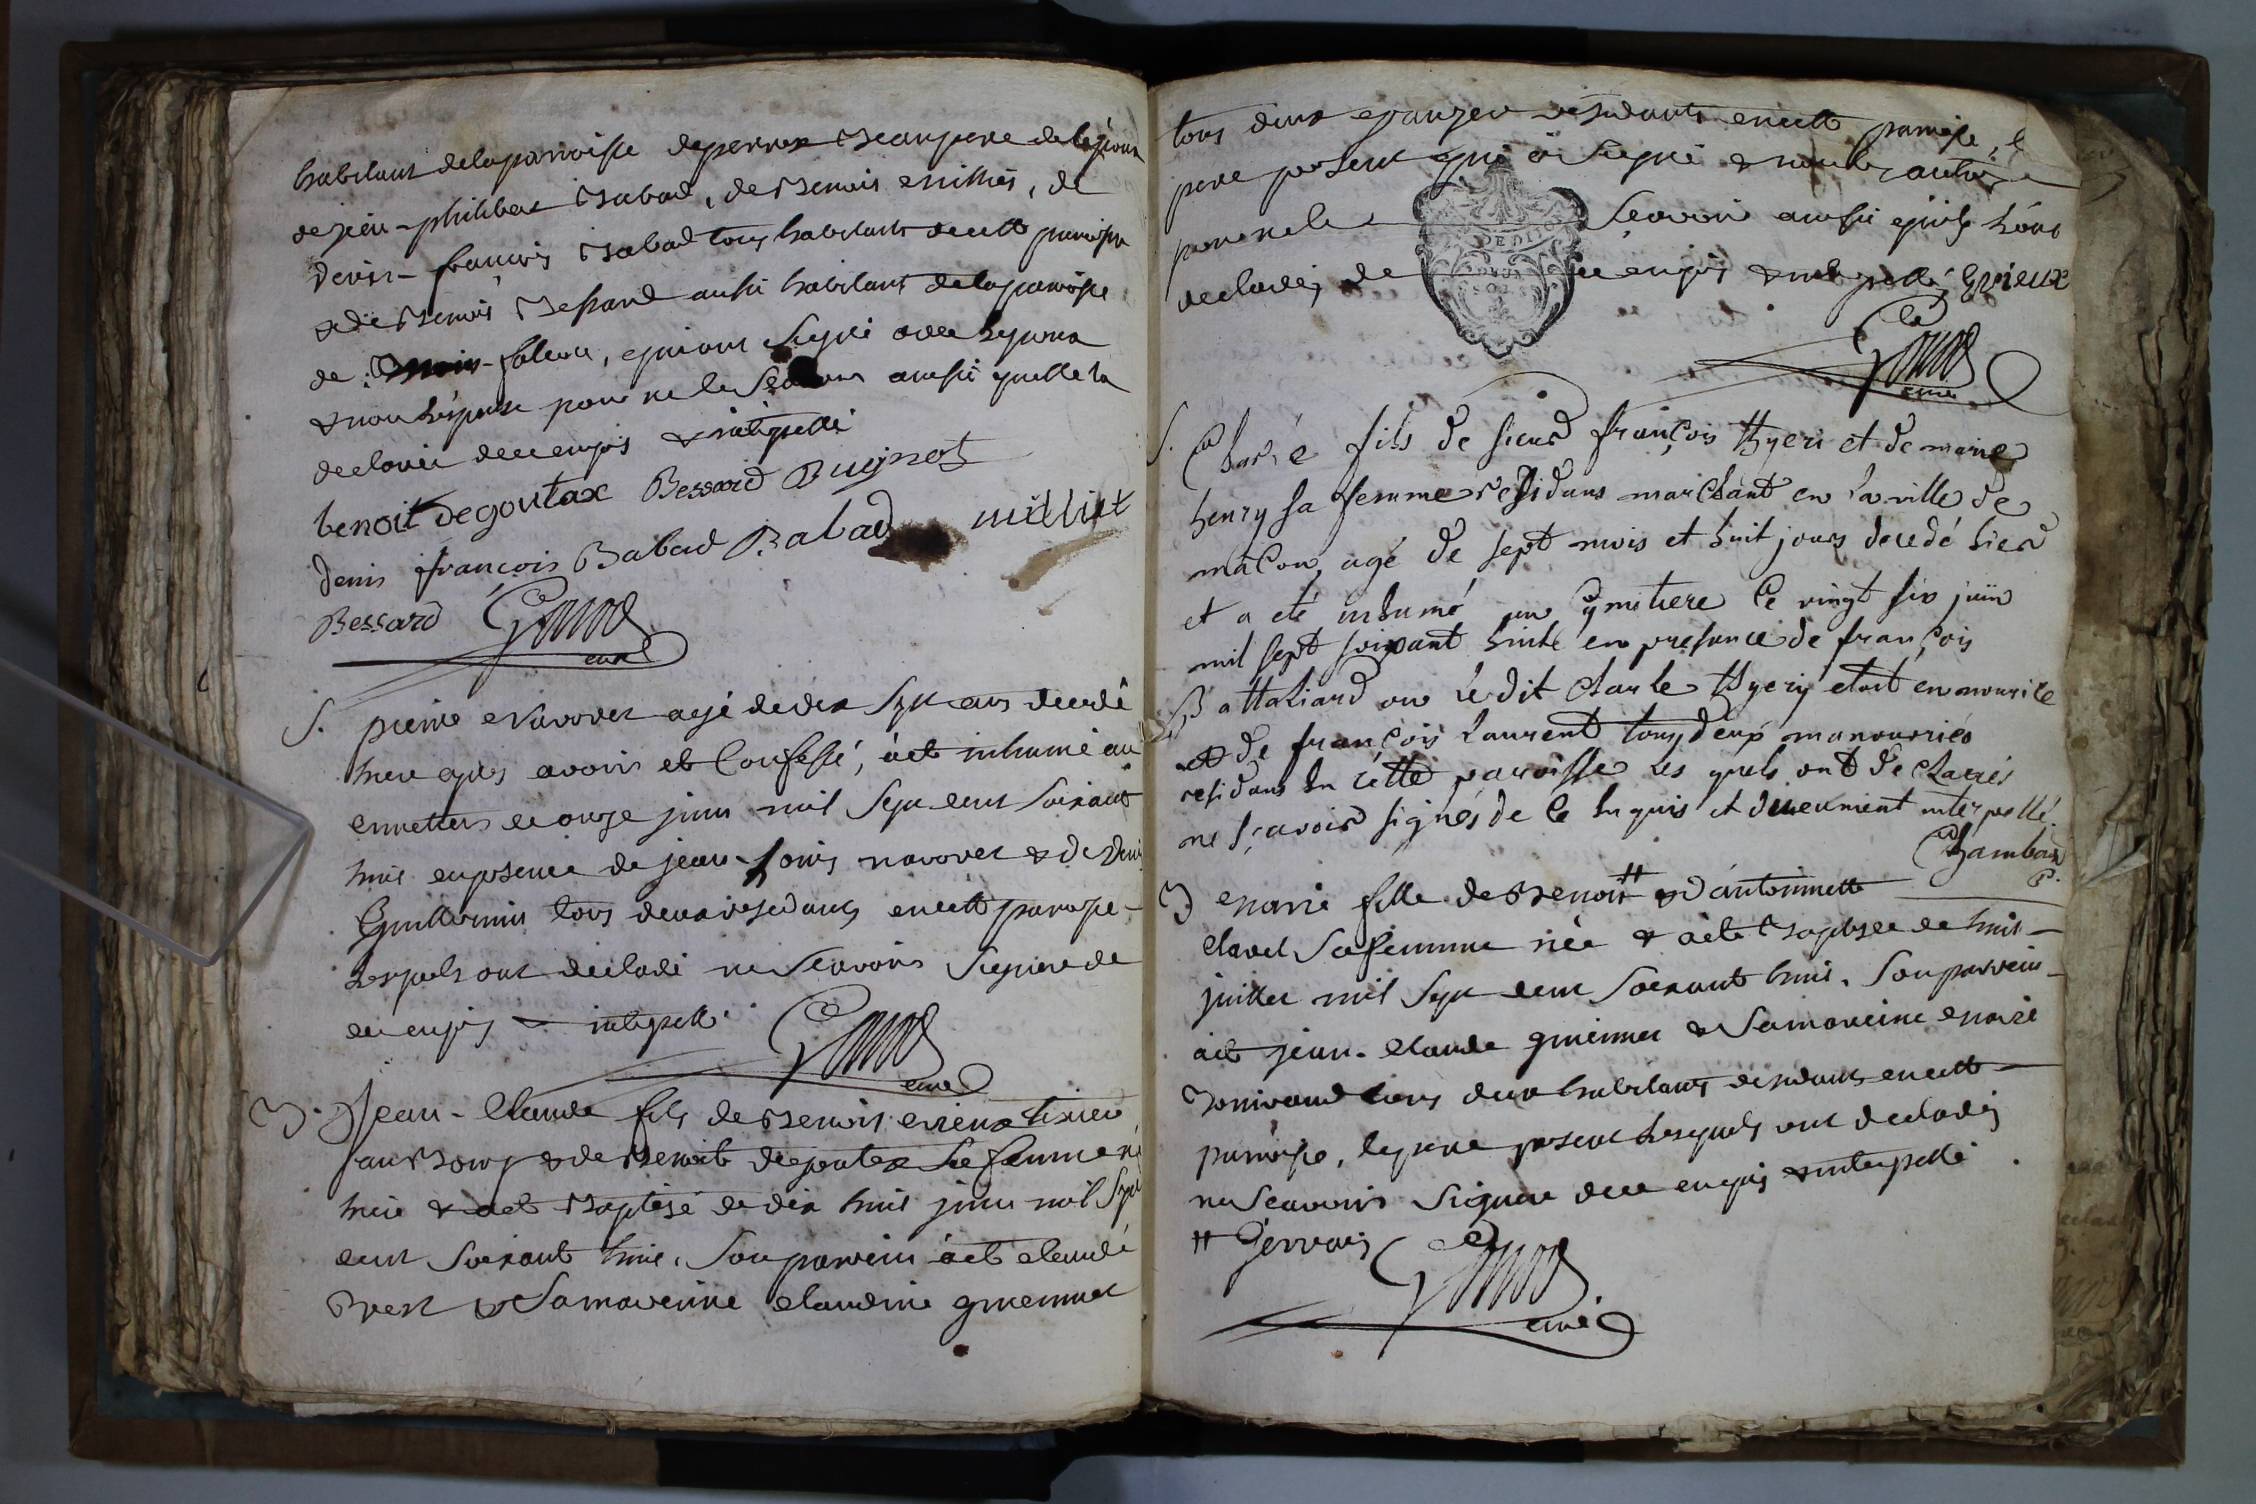 habitant de la paroisse de perrex beaupere de l'epoux
de sieur philibert Babad, de Benoit millier, de
denis-françois Babad tous habitants de cette paroisse
& de Benoit Bessard aussi habitant de la paroisse
de qui ont signé avec l'epoux
& non l'epouse pour ne le scavoir aussi quelle la
declaréé de ce enquis & interpellé
benoit degoutax Bessard Buijnot
denis françois Babad Babad milliet
Bessard Gonod
curé
S. pierre Navoret agé de dix sept ans decedé
hier apres avoir eté confessé, a eté inhumé au
cimettiere ce onze juin mil sept cent soixant
huit en presence de jean-louis navoret & de Denis
Guillermin tous deux residants en cette paroisse
lesquels ont declaré ne scavoir signer de
ce enquis & interpellé. Gonod
curé
B. Jean-Claude fils de Benoit Evieux tixier
au Bourg & de Benoite degoutax sa femme né
hier & a eté Baptisé ce dix huit juin mil sept
cent soixant huit. son parrein a eté claude
Brest & sa mareine claudine guennet
tous deux granger residants en cette paroisse, le
pere present qui a signé & non les autres
pour ne le scavoir aussi qu'ils l'ont
declarés de ce enquis & interpellés Evieux
DE DIJON
DEUX
SOLS
Gonod
curé
S. Charle fils de sieur françois thyeri et de marie
henry sa femme residans marchant en la ville de
macon, agé de sept mois et huit jours decedé hier
et a eté inhumé au cymitiere le vingt six juin
mil sept soixant huite en presence de françois
Battaliard ou le dit charle thyery etoit en nourice
et de françois laurent tous deux manouvriés
residans en cette paroisse les quels ont declarés
ne sçavoir signés de ce enquis et dueument interpellé.
Chambard
P.
B marie fille de Benoit # & d'antoinette
clavel sa femme née & a eté baptisée ce huit
juillet mil sept cent soixant huit. son parrein
a eté jean-claude guennet & sa mareine marie
Bonivaud tous deux habitants residants en cette
paroisse, le pere present lesquels ont declarés
ne scavoir signer de ce enquis & interpellé
# Gervais Gonod
curé